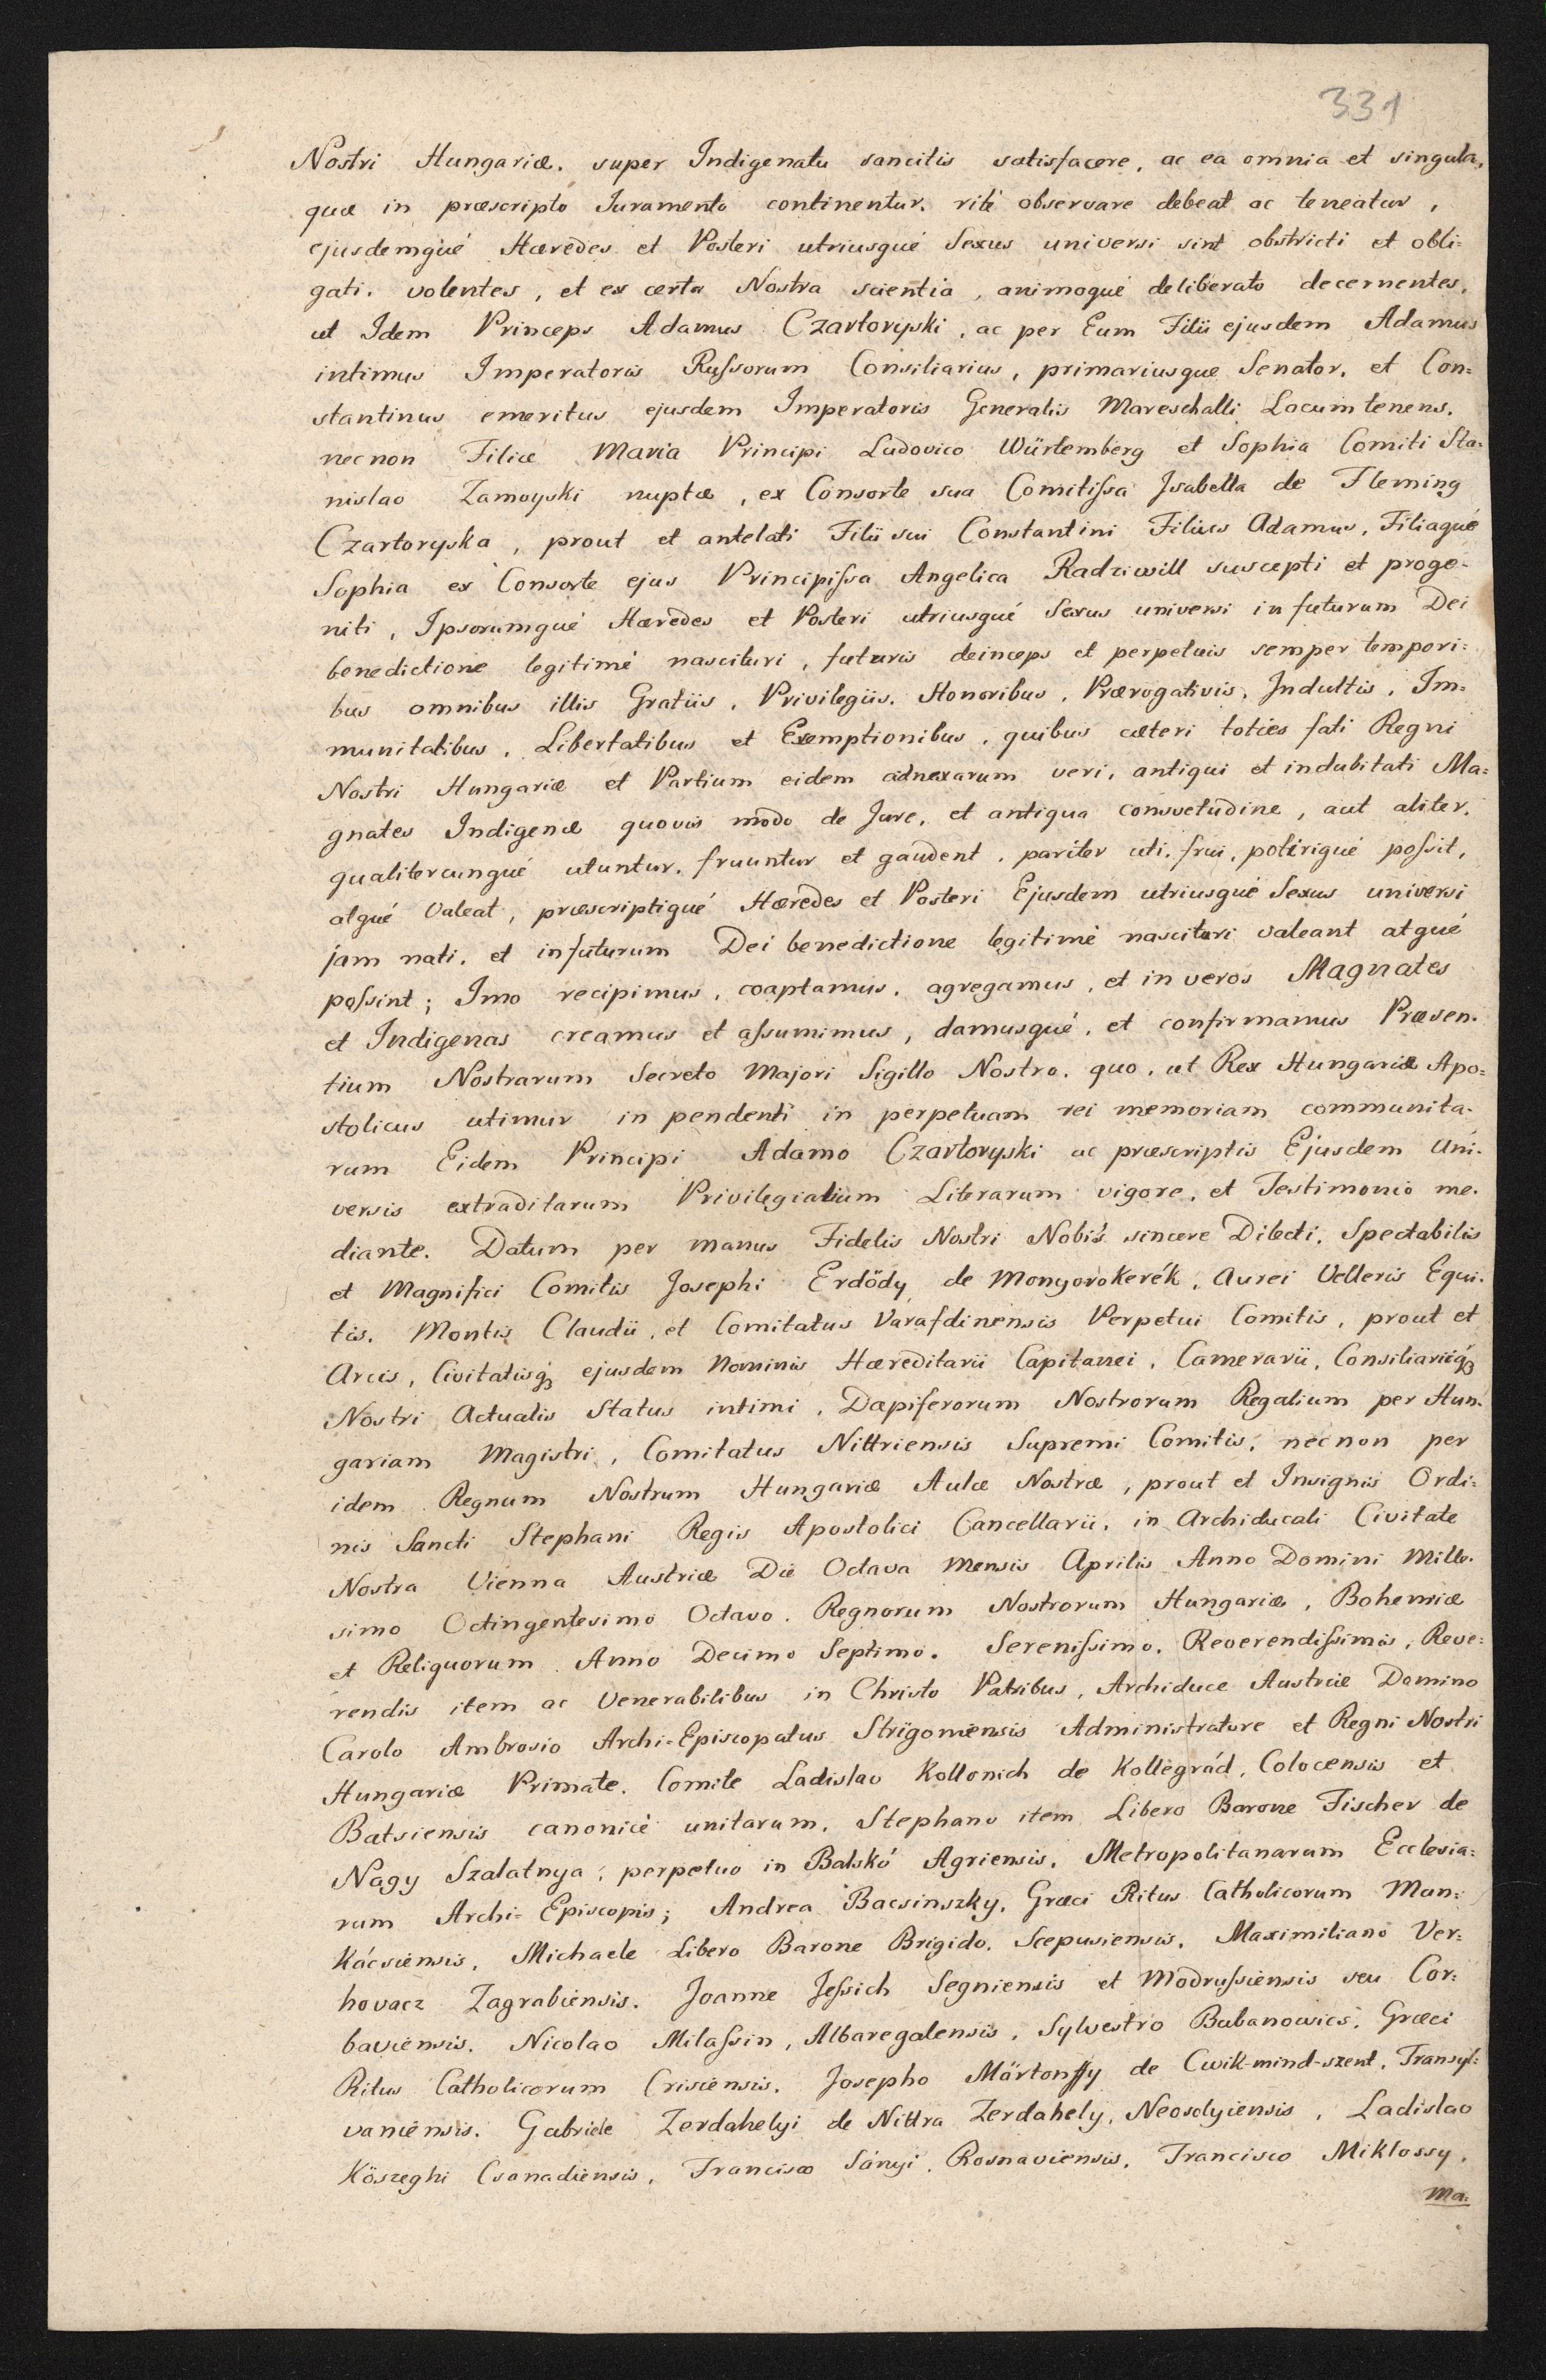 331
Nostri Hungariæ. super Indigenatu sancitis satisfacere, ac ea omnia et singula,
quæ in præscripto Juramento continentur. ritè observare debeat ac teneatur,
ejusdemqué Hæredes et Posteri utriusqué Sexus universi sint obstricti et obli=
gati. volentes, et ex certa Nostra scientia, animoqué deliberato decernentes,
ut Idem Princeps Adamus Czartoryski, ac per Eum Filii ejusdem Adamus
intimus Imperatoris Rufsorum Consiliarius, primariusque Senator, et Con=
stantinus emeritus ejusdem Imperatoris Generalis Mareschalli Locumtenens.
necnon Filiæ Maria Principi Ludovico Würtemberg et Sophia Comiti Sta=
nislao Zamoyski nuptæ, ex Consorte sua Comitifsa Isabella de Fleming
Czartoryska, prout et antelati Filii sui Constantini Filius Adamus, Filiaqué
Sophia ex Consorte ejus Principifsa Angelica Radziwill suscepti et proge=
niti, Ipsorumqué Hæredes et Posteri utriusqué Sexus universi in futurum Dei
benedictione legitimè nascituri, futuris deinceps et perpetuis semper tempori=
bus omnibus illis Gratiis, Privilegiis. Honoribus, Prærogativis, Indultis, Im=
munitatibus, Libertatibus et Exemptionibus, quibus cæteri toties fati Regni
Nostri Hungariæ et Partium eidem adnexarum veri, antiqui et indubitati Ma=
gnates Indigenæ quovis modo de Jure, et antiqua consvetudine, aut aliter,
qualitercunqué utuntur, fruuntur et gaudent, pariter uti, frui, potiriqué pofsit,
atqué valeat, præscriptiqué Hæredes et Posteri Ejusdem utriusqué Sexus universi
jam nati. et infuturum Dei benedictione legitimè nascituri valeant atqué
pofsint; Imo recipimus, coaptamus, agregamus, et in veros Magnates
et Indigenas creamus et afsumimus, damusqué, et confirmamus Præsen=
tium Nostrarum Secreto Majori Sigillo Nostro. quo, ut Rex Hungariæ Apo=
stolicus utimur in pendenti in perpetuam rei memoriam communita=
rum Eidem Principi Adamo Czartoryski ac præscriptis Ejusdem Uni=
versis extraditarum Privilegialium Literarum vigore, et Testimonio me=
diante. Datum per manus Fidelis Nostri Nobis sincere Dilecti, Spectabilis
et Magnifici Comitis Josephi Erdödy de Monyorokerék, Aurei Velleris Equi=
tis. Montis Claudii, et Comitatus Varasdinensis Perpetui Comitis, prout et
Arcis, Civitatisq; ejusdem Nominis Hæreditarii Capitanei, Camerarii, Consiliariiq;
Nostri Actualis Status intimi, Dapiferorum Nostrorum Regalium per Hun=
gariam Magistri, Comitatus Nittriensis Supremi Comitis, necnon per
idem Regnum Nostrum Hungariæ Aulæ Nostræ, prout et Insignis Ordi=
nis Sancti Stephani Regis Apostolici Cancellarii, in Archiducali Civitate
Nostra Vienna Austriæ Die Octava Mensis Aprilis Anno Domini Mille=
simo Octingentesimo Octavo. Regnorum Nostrorum Hungariæ, Bohemiæ
et Reliquorum Anno Decimo Septimo. Serenifsimo, Reverendifsimis, Reve=
rendis item ac Venerabilibus in Christo Patribus, Archiduce Austriæ Domino
Carolo Ambrosio Archi-Episcopatus Strigoniensis Administratore et Regni Nostri
Hungariæ Primate. Comite Ladislao Kollonich de Kollegrád, Colocensis et
Batsiensis canonicè unitarum, Stephano item Libero Barone Fischer de
Nagy Szalatnya, perpetuo in Balskó Agriensis, Metropolitanarum Ecclesia=
rum Archi-Episcopis; Andrea Bacsinszky, Græci Ritus Catholicorum Mun=
kácsiensis, Michaele Libero Barone Brigido, Scepusiensis, Maximiliano Ver=
hovacz Zagrabiensis. Joanne Jefsich Segniensis et Modrufsiensis seu Cor=
baviensis. Nicolao Milafsin, Albaregalensis, Sylvestro Bubanowics, Græci
Ritus Catholicorum Crisiensis. Josepho Mártonffy de Cwik-mind-szent, Transyl=
vaniensis. Gabriele Zerdahelyi de Nittra Zerdahely, Neosolyiensis, Ladislao
Köszeghi Csanadiensis, Francisco Sányi, Rosnaviensis, Francisco Miklossy,
Ma=